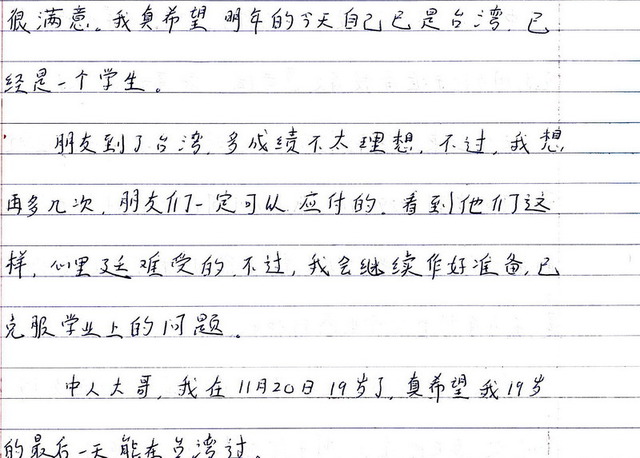 很满意。我真希望明年的今天自己已是台湾,已
经是一个学生。
朋友到了台湾,多成绩不太理想,不过,我想
再多几次,朋友们一定可以应付的,看到他们这
样,心里廷难受的,不过,我会继续作好准备,已
克服学业上的问题。
中人大哥,我在11月20日19岁了,真希望我19岁
的最后一天能在台湾过。